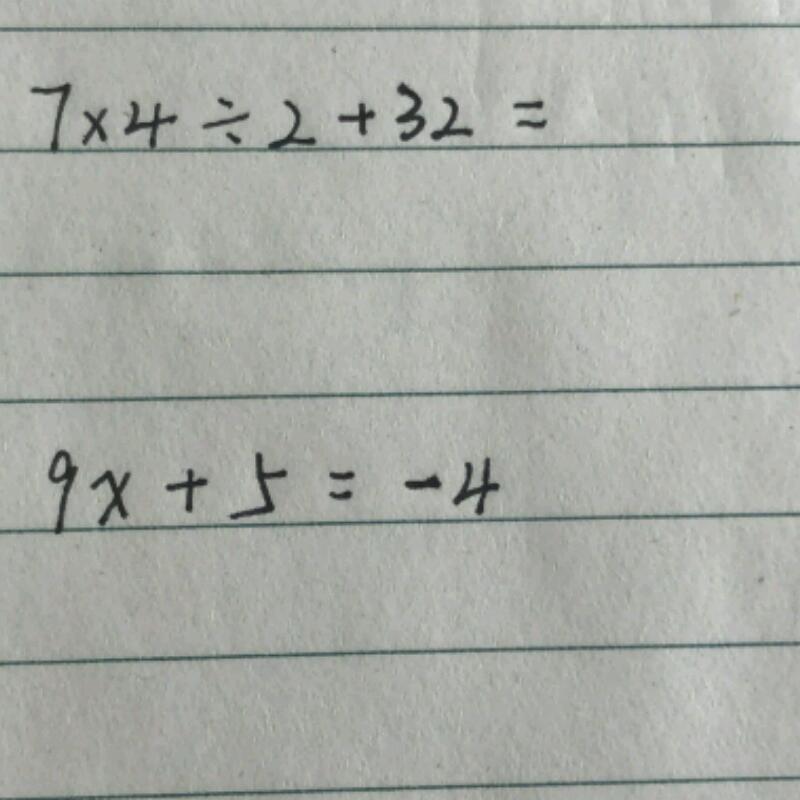 7×4÷2+32=
9x+5=-4